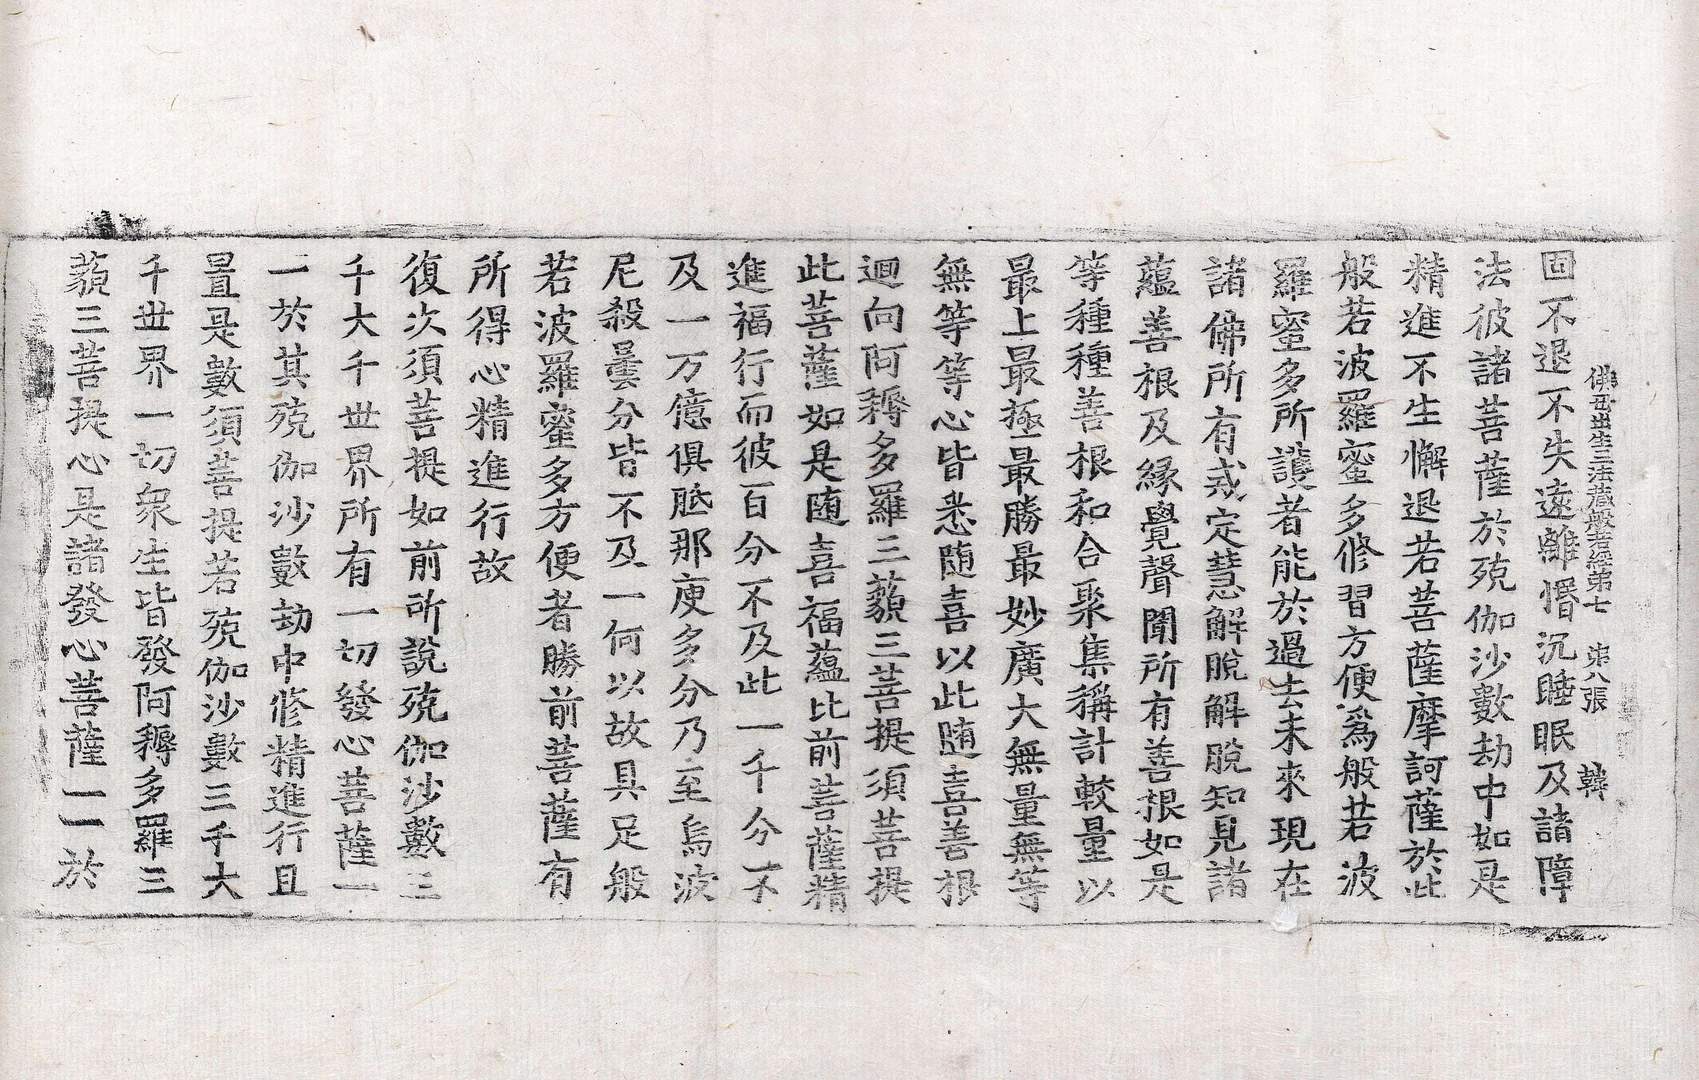 佛母出生三法藏般若經第七　第八張　韓
固不退不失遠離惛沉睡眠及諸障
法彼諸菩薩於殑伽沙數劫中如是
精進不生懈退若菩薩摩訶薩於此
般若波羅蜜多修習方便爲般若波
羅蜜多所護者能於過去未來現在
諸佛所有戒定慧解脫解脫知見諸
蘊善根及緣覺聲聞所有善根如是
等種種善根和合聚集稱計較量以
最上最極最勝最妙廣大無量無等
無等等心皆悉随喜以此随喜善根
迴向阿耨多羅三藐三菩提須菩提
此菩薩如是随喜福蘊比前菩薩精
進福行而彼百分不及此一千分不
及一万億俱胝那庾多分乃至烏波
尼殺曇分皆不及一何以故具足般
若波羅蜜多方便者勝前菩薩有
所得心精進行故
復次須菩提如前所說殑伽沙數三
千大千世界所有一切發心菩薩一
一於其殑伽沙數劫中修精進行且
置是數須菩提若殑伽沙數三千大
千世界一切衆生皆發阿耨多羅三
藐三菩提心是諸發心菩薩一一於